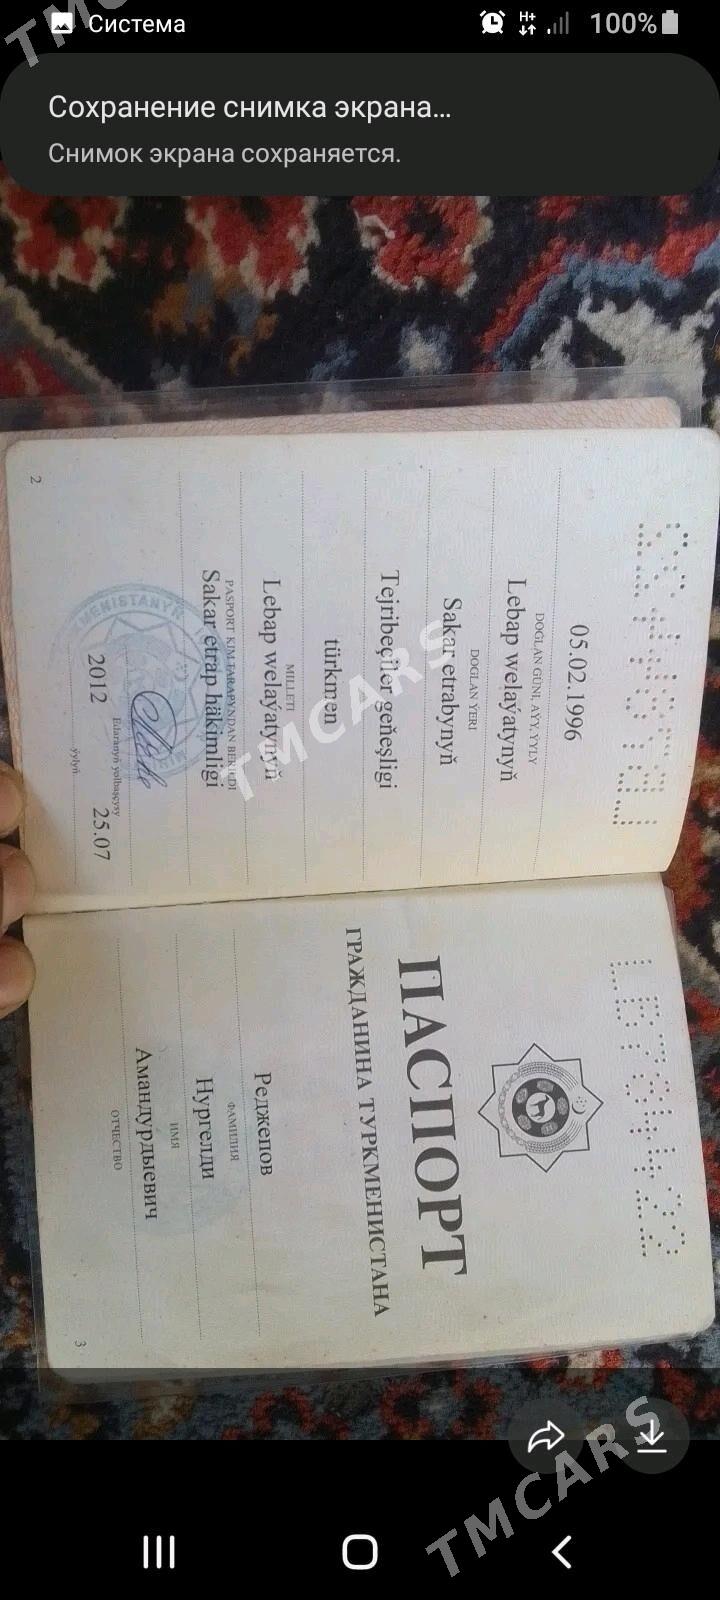 Система
100%
Сохранение снимка экрана...
Снимок экрана сохраняется.
05.02.1996
DOGLAN GÜNI, AÝY, ÝYLY
Lebap welaýatynyň
Sakar etrabynyň
DOGLAN ÝERI
Tejribeçiler geňeşligi
türkmen
MILLETI
Lebap welaýatynyň
PASPORT KIM TARAPYNDAN BERILDI
Sakar etrap häkimligi
Edaranyň ýolbaşçysy
25.07
2012
ýylyň
2
ПАСПОРТ
ГРАЖДАНИНА ТУРКМЕНИСТАНА
Редженов
ФАМИЛИЯ
Нургелди
ИМЯ
Амандурдыевич
ОТЧЕСТВО
3
TMCARS
TMCARS